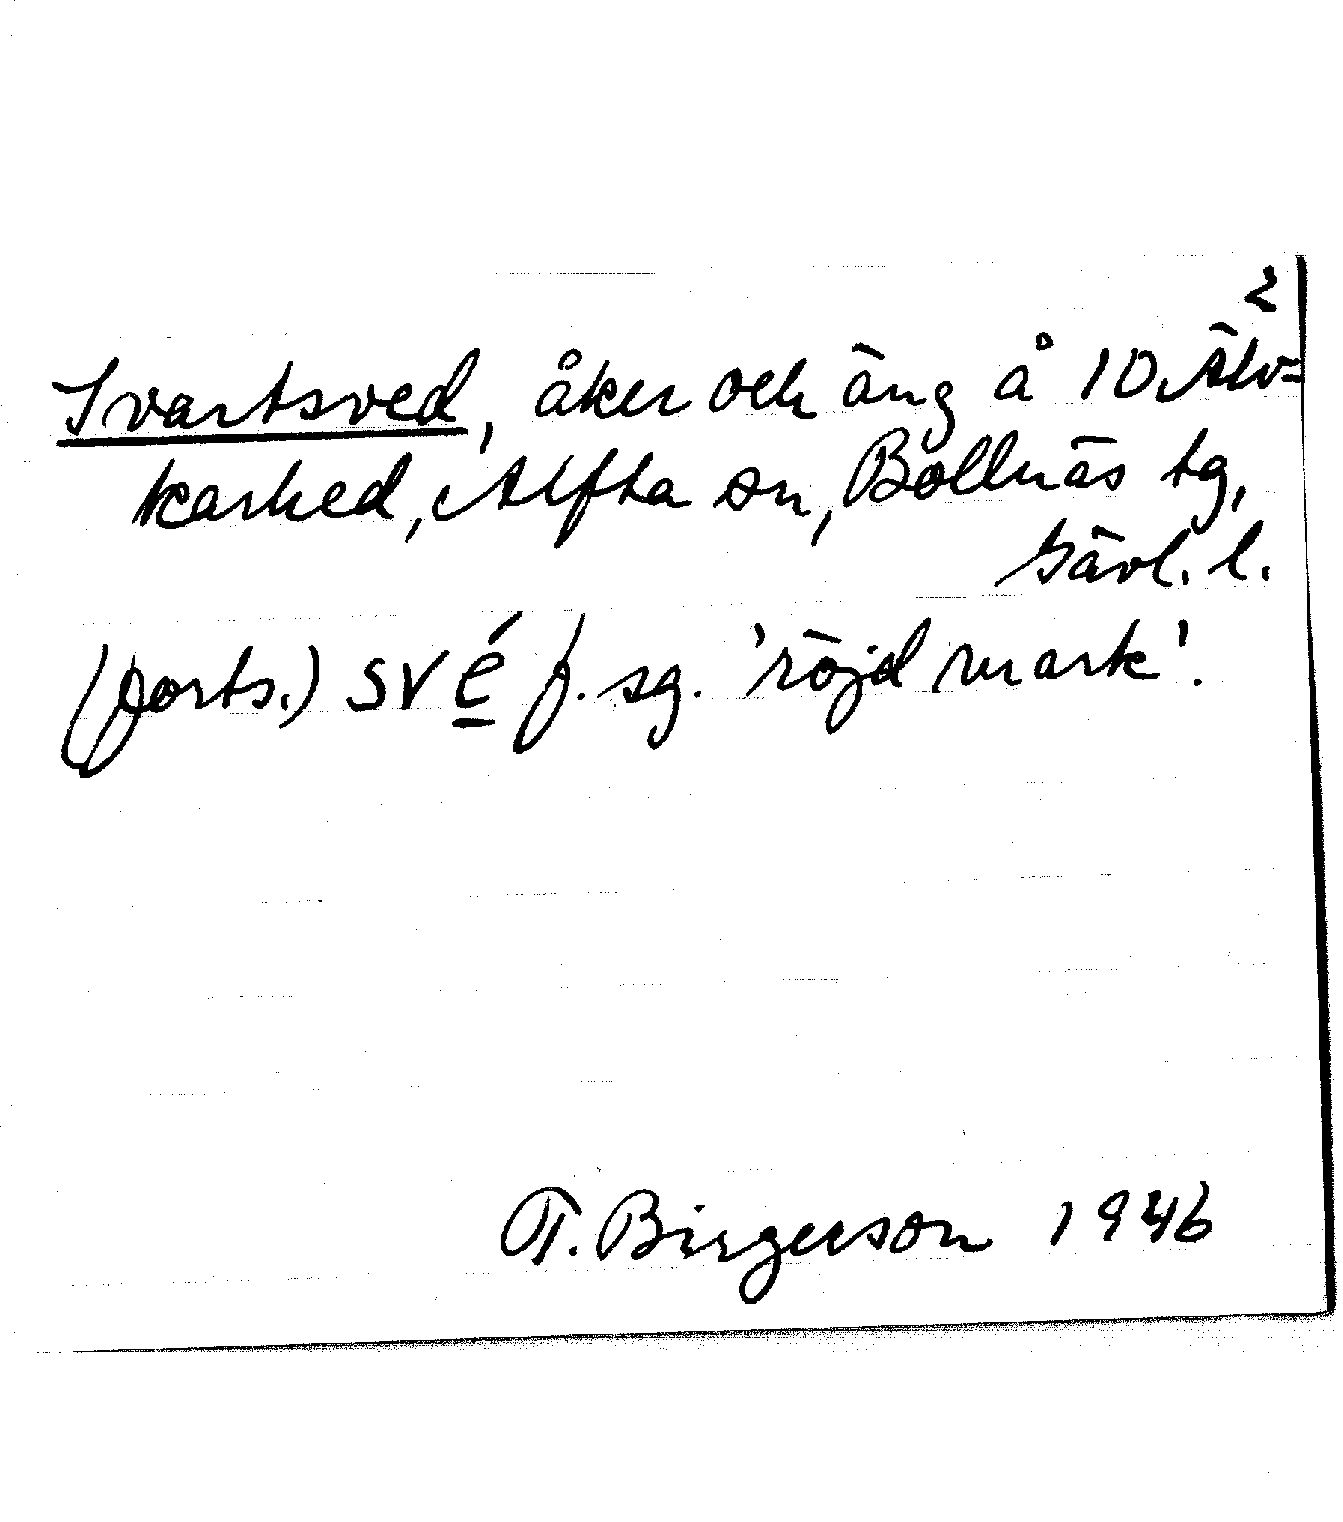 2
Svartsved, åker och äng å 10 Älv=
karhed, Alfta sn, Bollnäs tg,
Gävl. l.
(forts.) své̲ f. sg. 'röjd mark'.
T. Birgerson 1946